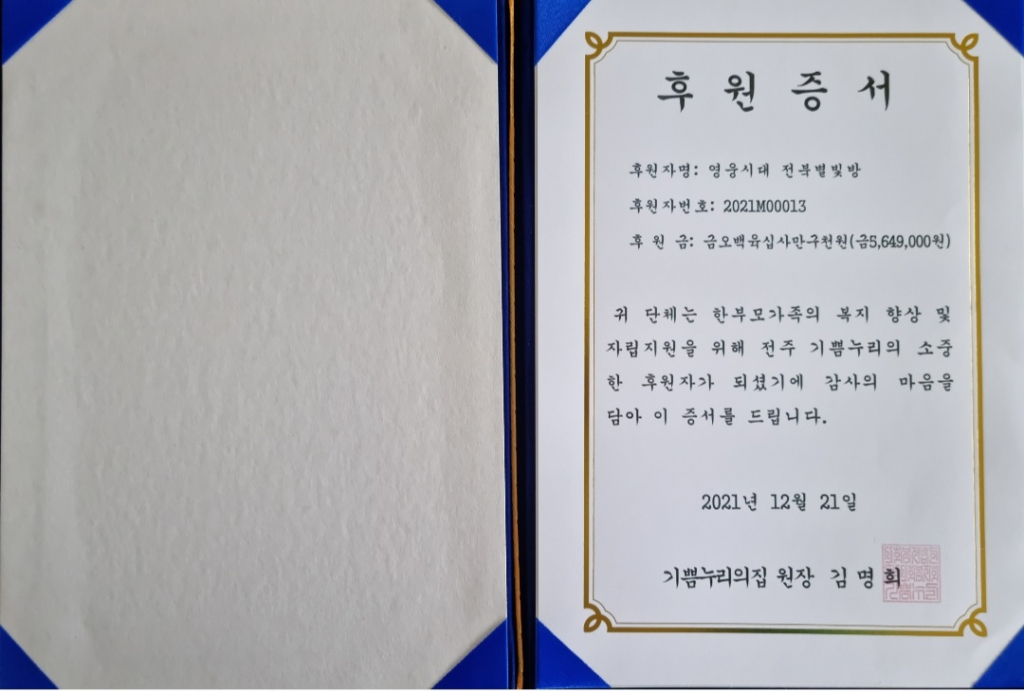 후원증서
후원자명: 영웅시대 전북별빛방
후원자번호: 2021M00013
후 원 금: 금오백육십사만구천원(금5,649,000원)
귀 단체는 한부모가족의 복지 향상 및
자립지원을 위해 전주 기쁨누리의 소중
한 후원자가 되셨기에 감사의 마음을
담아 이 증서를 드립니다.
2021년 12월 21일
기쁨누리의집 원장 김명희